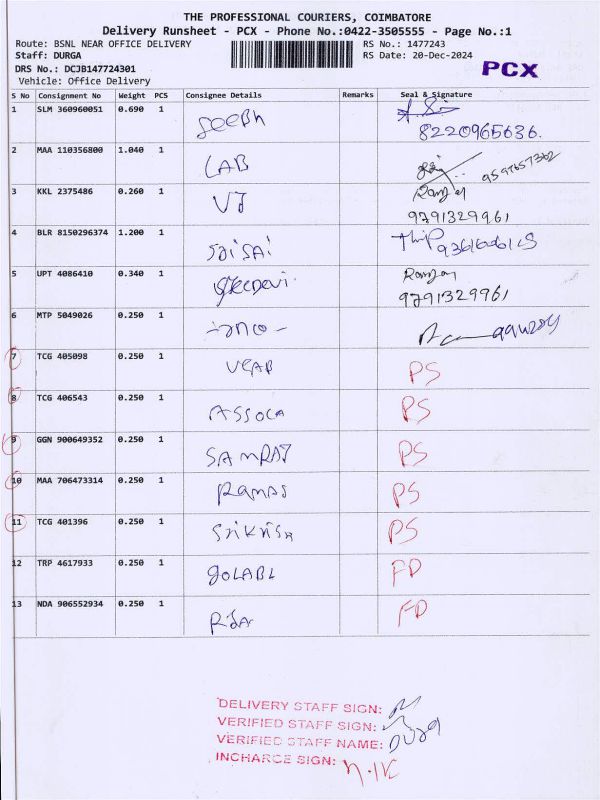 THE PROFESSIONAL COURIERS, COIMBATORE
Delivery Runsheet - PCX - Phone No.:0422-3505555 - Page No.:1
Route: BSNL NEAR OFFICE DELIVERY RS No.: 1477243
Staff: DURGA RS Date: 20-Dec-2024
DRS No.: DCJB147724301 PCX
Vehicle: Office Delivery
S No Consignment No Weight PCS Consignee Details Remarks Seal & Signature
1 SLM 360960051 0.690 1
8220965636.
2 MAA 110356800 1.040 1 LAB
3 KKL 2375486 0.260 1 VJ
9791329961
4 BLR 8150296374 1.200 1 SRI SAI
5 UPT 4086410 0.340 1
9791329961
6 MTP 5049026 0.250 1
7 TCG 405098 0.250 1 PS
8 TCG 406543 0.250 1 ASSOCA PS
9 GGN 900649352 0.250 1 SAMRAJ PS
10 MAA 706473314 0.250 1 PS
11 TCG 401396 0.250 1 SriKrisn PS
12 TRP 4617933 0.250 1 GOLABL FD
13 NDA 906552934 0.250 1 FD
DELIVERY STAFF SIGN:
VERIFIED STAFF SIGN:
VERIFIED STAFF NAME:
INCHARGE SIGN: